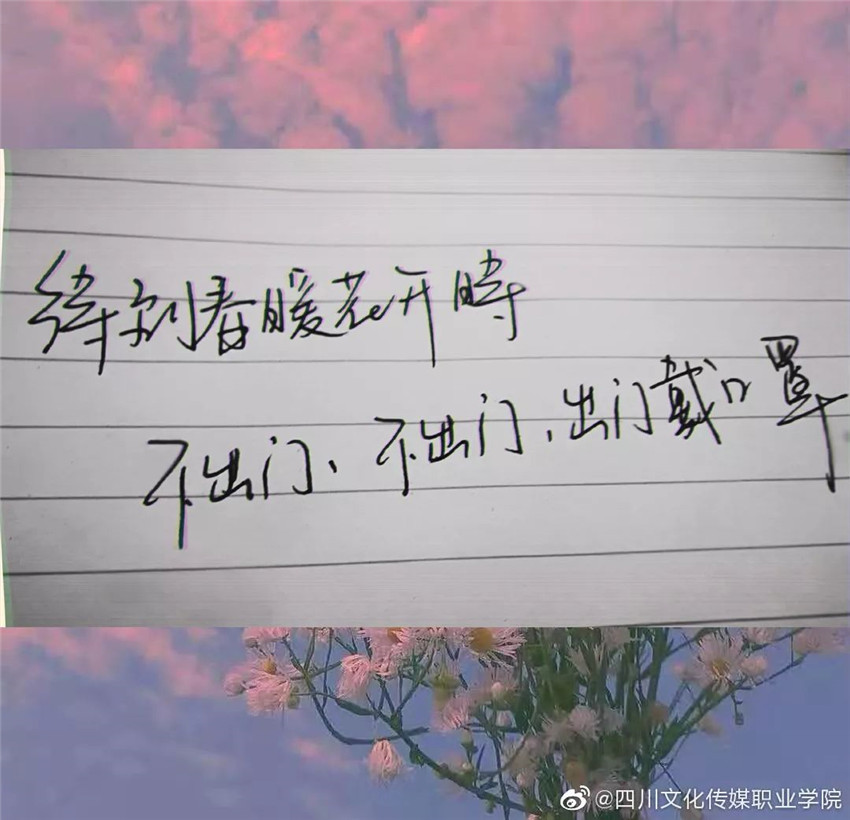 待到春暖花开時
不出门、不出门、出门戴口罩
@四川文化传媒职业学院